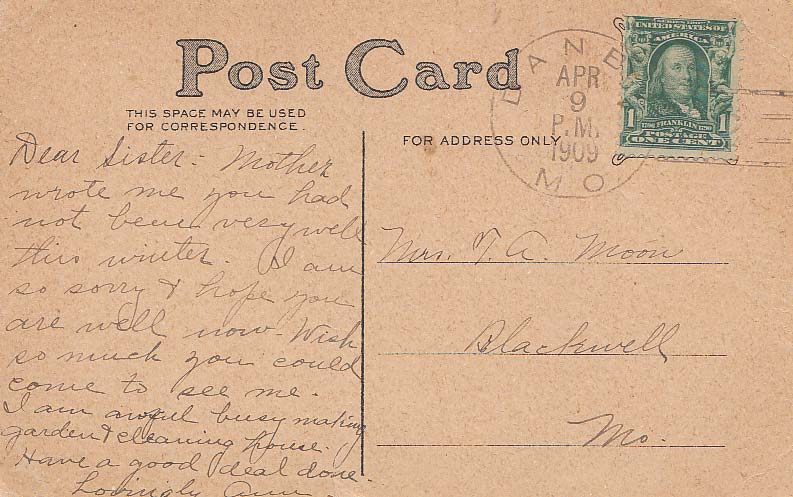 Post Card
THIS SPACE MAY BE USED
FOR CORRESPONDENCE.
FOR ADDRESS ONLY
APR
9
P.M.
1909
MO
SERIES 1902
UNITED STATES OF
AMERICA
1 1
FRANKLIN
POSTAGE
ONE CENT
Dear Sister:- Mother
wrote me you had
not been very well
this winter. I am
so sorry & hope you
are well now - Wish
so much you could
come to see me.
I am awful busy making
garden & cleaning house.
Have a good deal done.
Lovingly Ann.
Mrs. T. A. Moon
Blackwell
Mo.